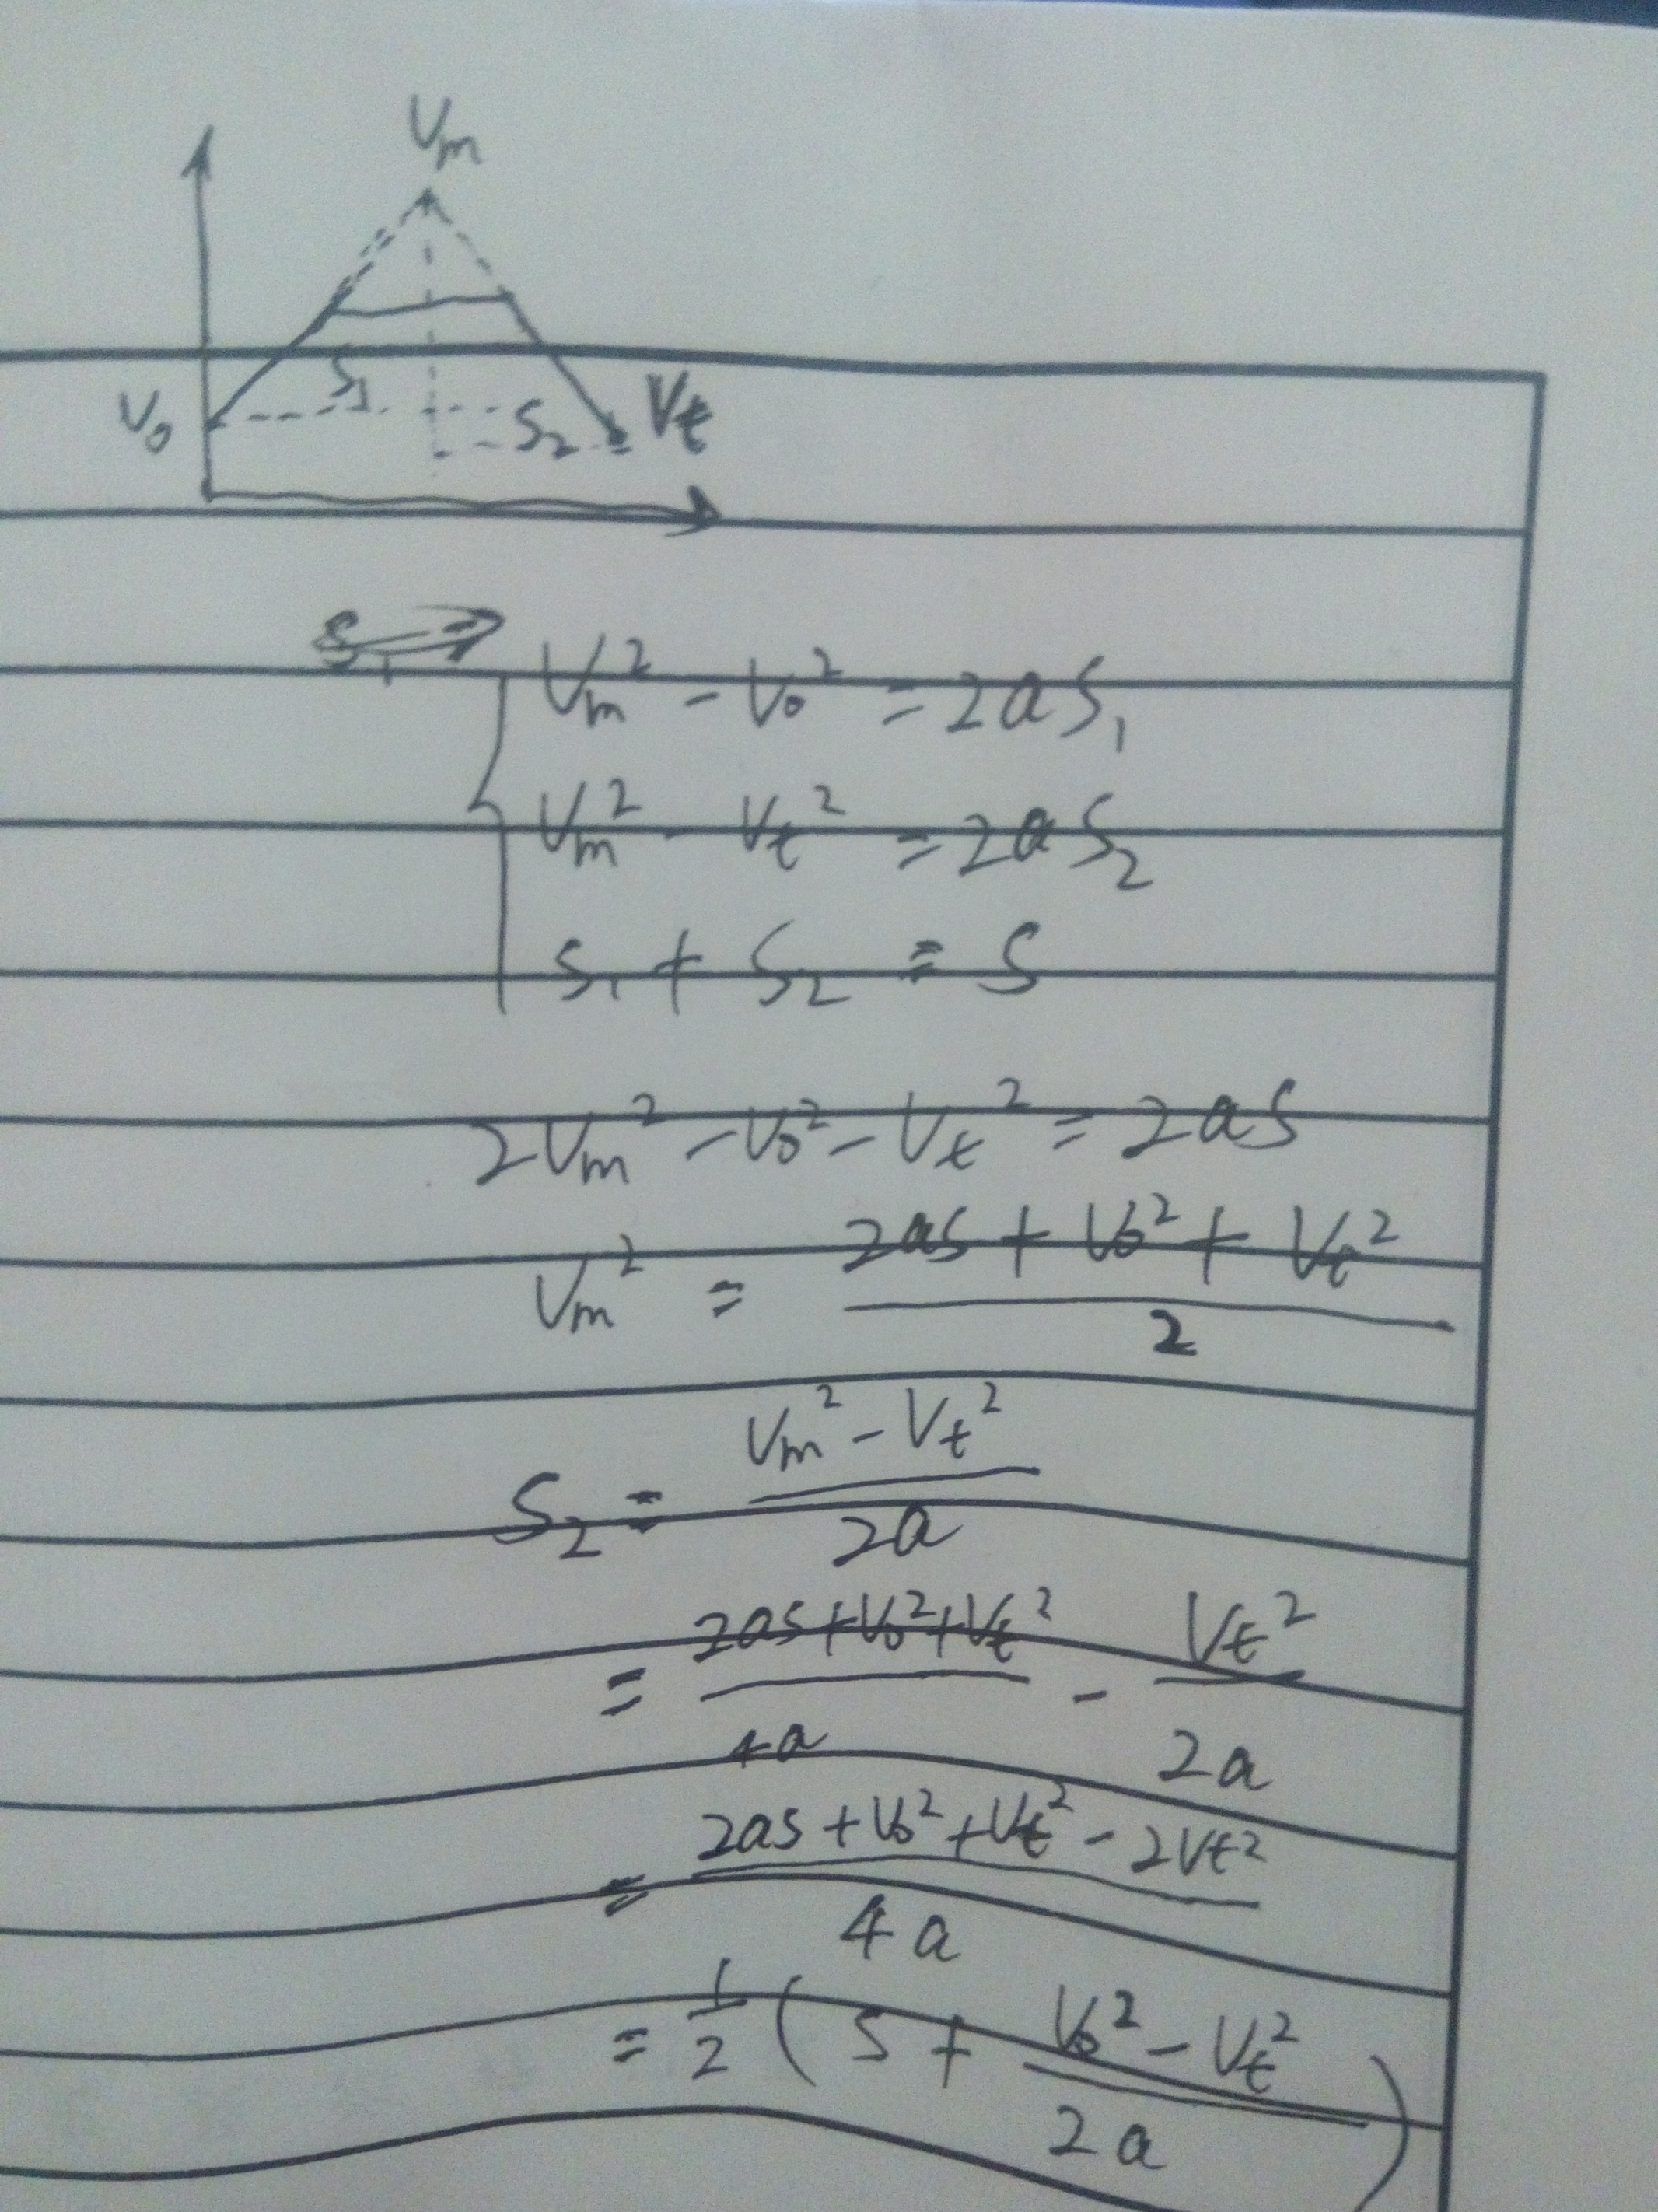 Vm
S₁
V₀ S₂ Vt
S₁ ⇒
Vm² - V₀² = 2aS₁
Vm² - Vt² = 2aS₂
S₁ + S₂ = S
2Vm² - V₀² - Vt² = 2aS
Vm² = (2aS + V₀² + Vt²) / 2
S₂ = (Vm² - Vt²) / 2a
= (2aS + V₀² + Vt²) / 4a - Vt² / 2a
= (2aS + V₀² + Vt² - 2Vt²) / 4a
= 1/2 (S + (V₀² - Vt²) / 2a)